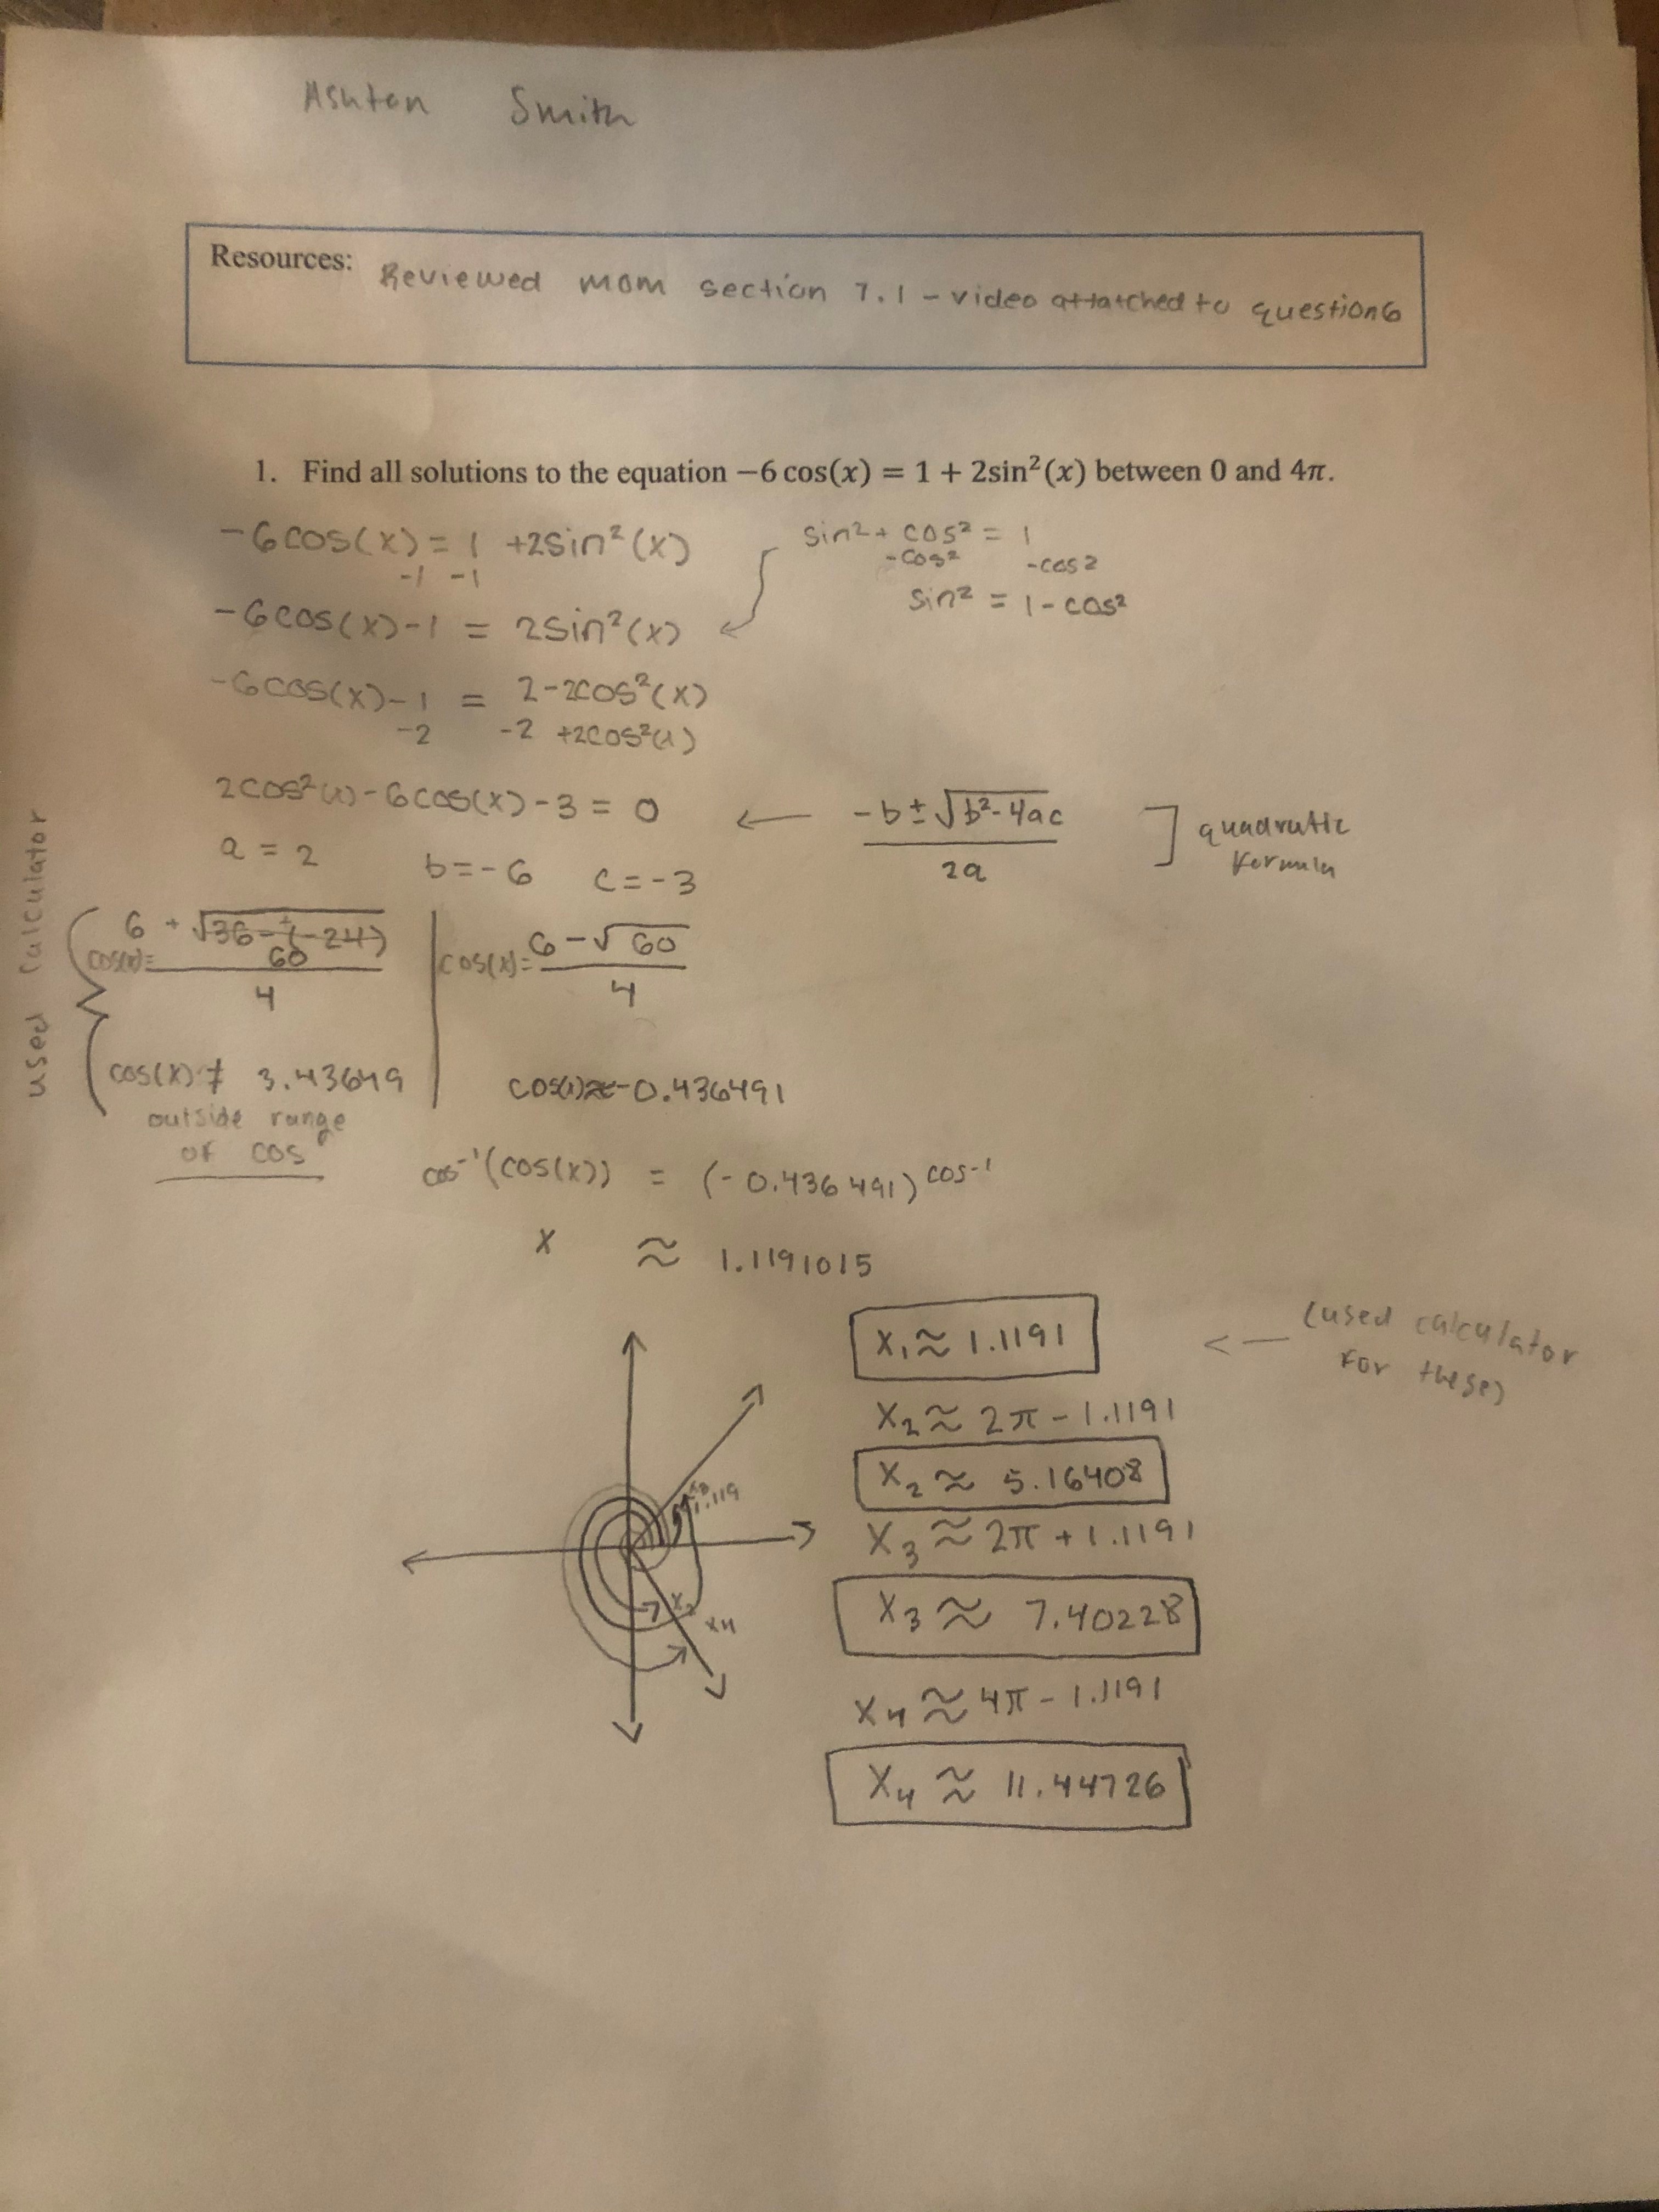 Ashton Smith
Resources: Reviewed mom section 7.1 - video attatched to question 6
1. Find all solutions to the equation −6 cos(x) = 1 + 2sin²(x) between 0 and 4π.
-6cos(x) = 1 +2sin²(x)
-1 -1
sin² + cos² = 1
-cos² -cos²
sin² = 1 - cos²
-6cos(x)-1 = 2sin²(x)
-6cos(x)-1 = 2-2cos²(x)
-2 -2 +2cos²(x)
2cos²(x)-6cos(x)-3 = 0
-b ± √b²-4ac
2a
quadratic
formula
a = 2 b=-6 c=-3
used calculator
cos(x)= 6 + √36-(-24)
+
60
4
cos(x)= 6-√60
4
cos(x) ≠ 3.43649
outside range
of cos
cos(x)≈-0.436491
cos⁻¹(cos(x)) = (-0.436491)cos⁻¹
x ≈ 1.1191015
x₁ ≈ 1.1191
(used calculator
for these)
x₂ ≈ 2π - 1.1191
x₂ ≈ 5.16408
x₃ ≈ 2π + 1.1191
x₃ ≈ 7.40228
x₄ ≈ 4π - 1.1191
x₄ ≈ 11.44726
x₃
1.119
x₂
x₄